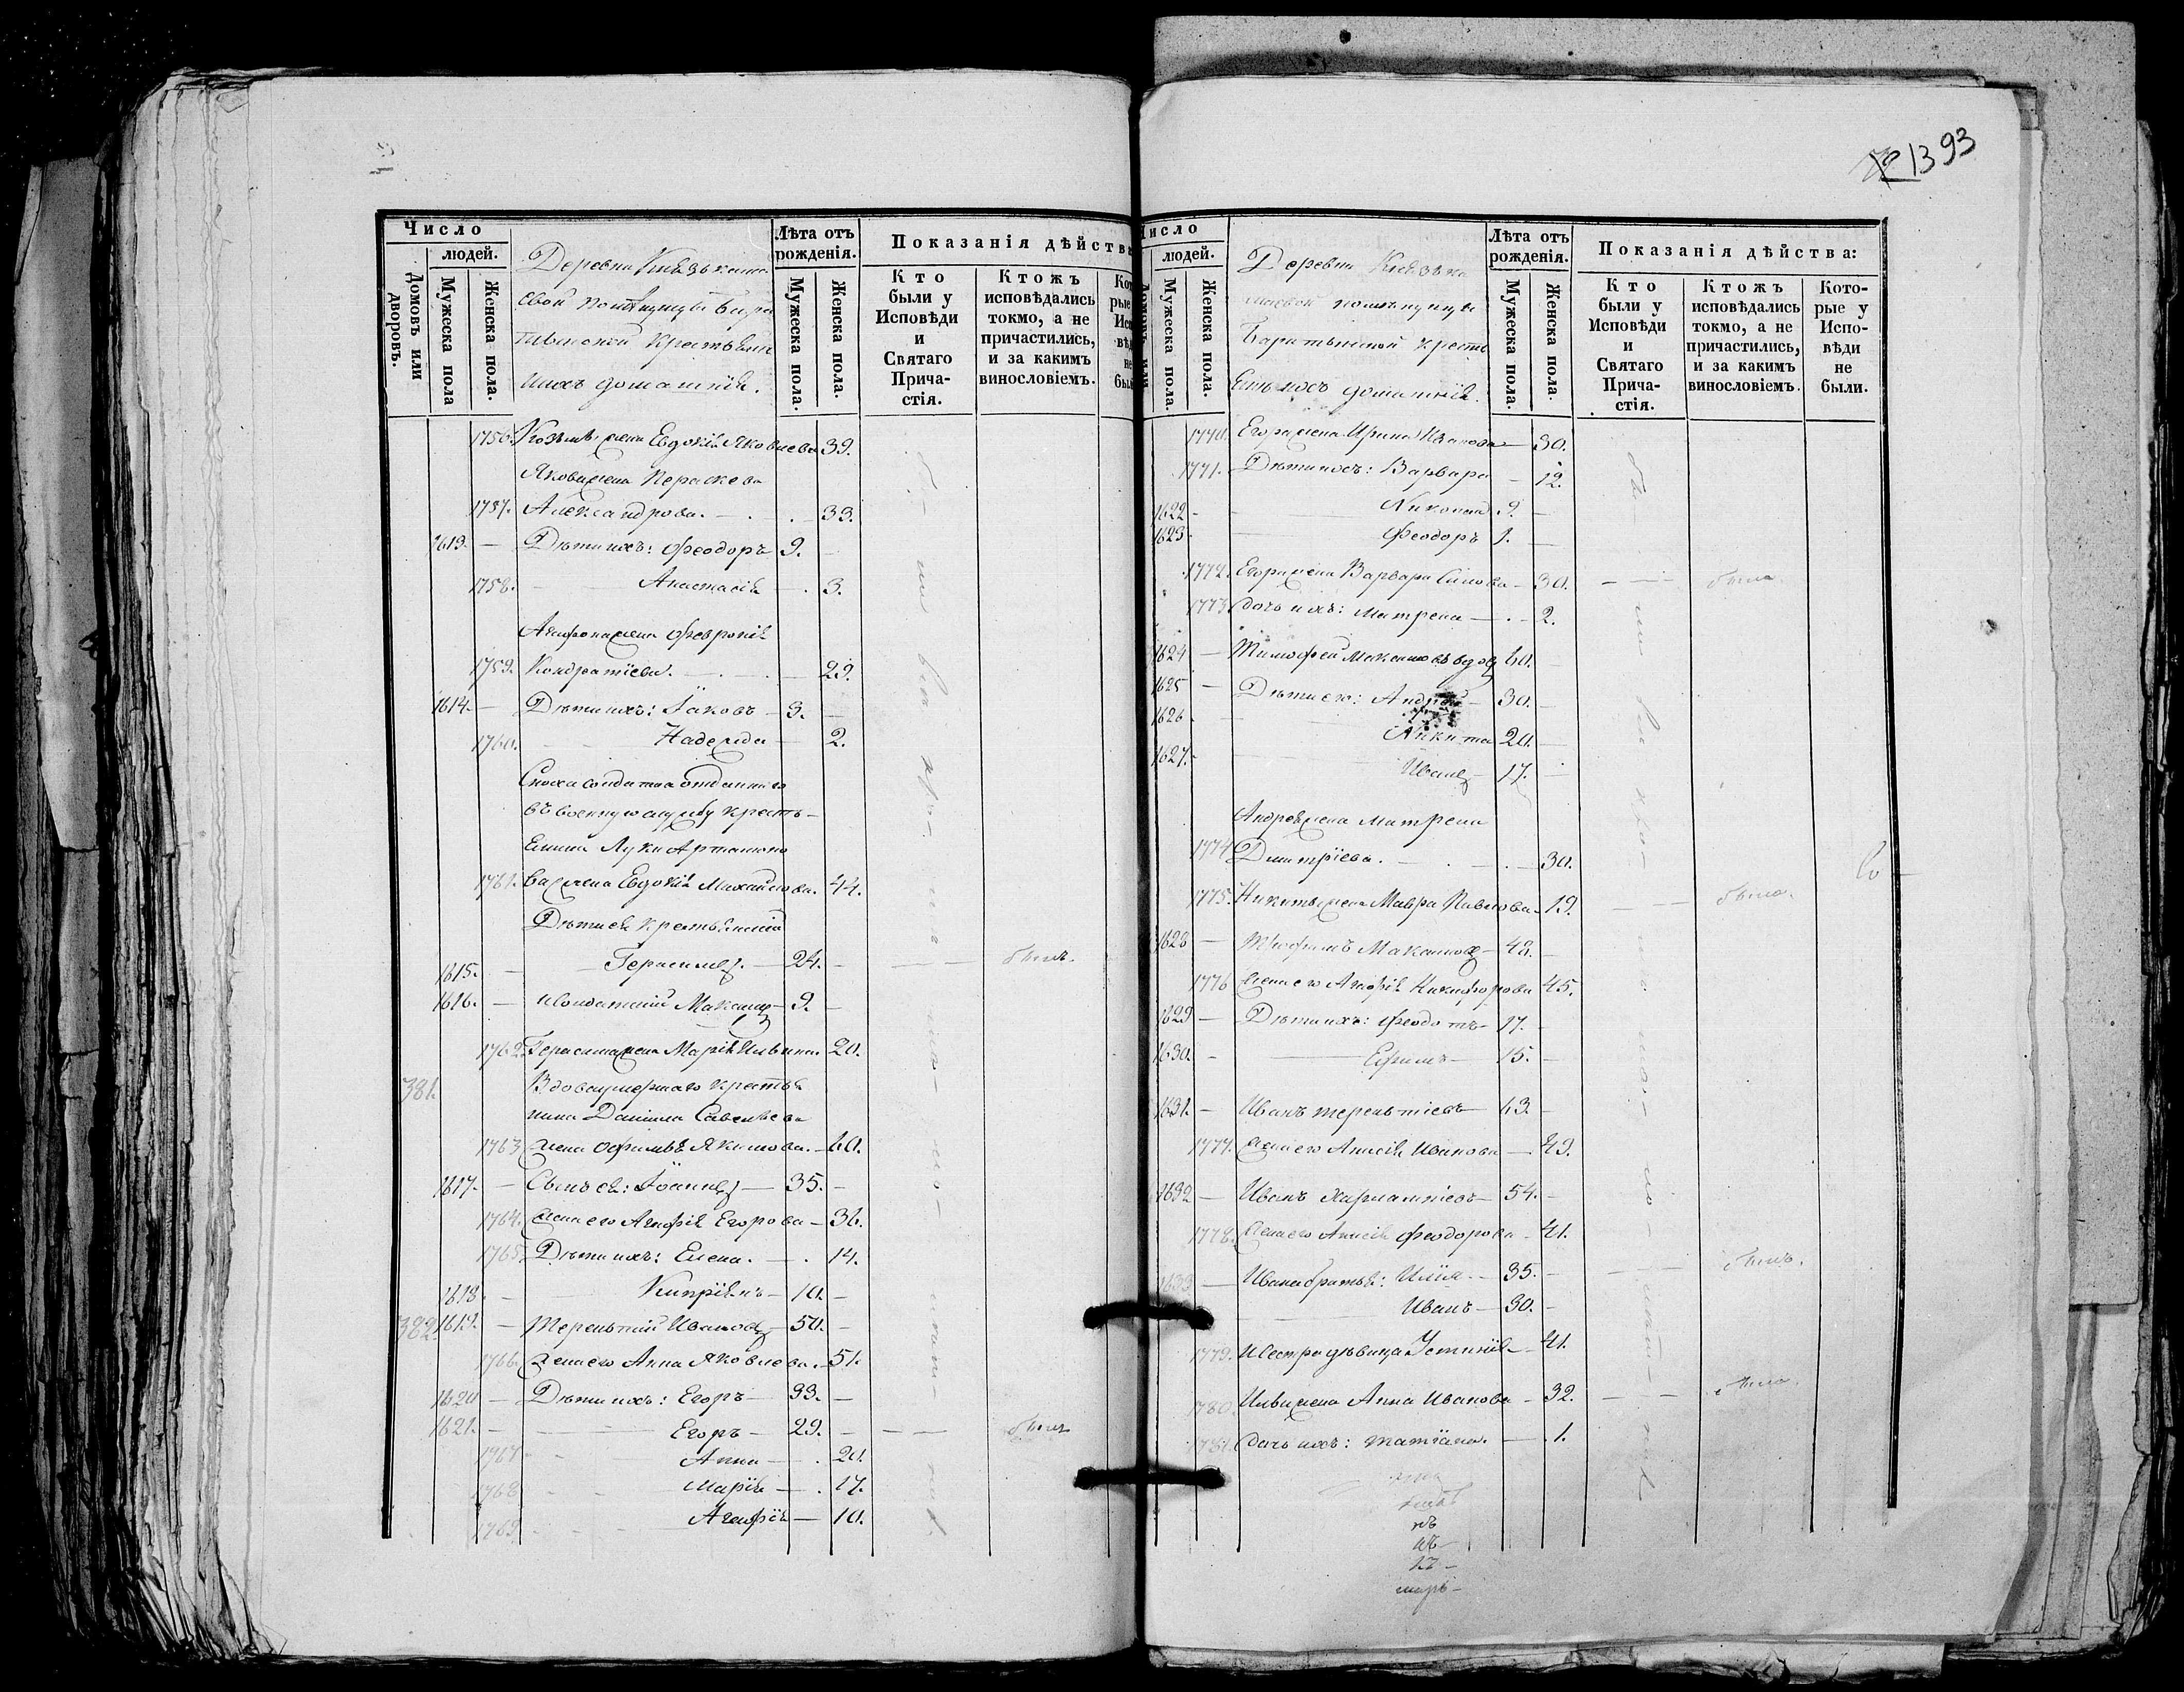 № 1393
Число
людей.
Домовъ или дворовъ.
Мужеска пола
Женска пола.
Деревня
свой помѣщицы
тынской Крестьяне
ихъ домашнія.
Лѣта отъ рожденія.
Мужеска пола.
Женска пола.
Показанія дѣйств
Кто были у Исповѣди и Святаго Причастія.
Ктожъ исповѣдались токмо, а не причастились, и за какимъ винословіемъ.
1756. Козмы жена Евдокія Яковлева 39.
Якова жена Параскева
1757. Александрова. — 33.
1613. — Дѣти ихъ: Феодоръ 9. —
1758. — Анастасія — 3.
Агафона жена Февронія
1759. Кондратіева. — 29.
1614. — Дѣти ихъ: Іаковъ — 3. —
1760. — Надежда — 2.
Сноха солдатка отданнаго
въ военную службу кресть-
янина Луки Артамоно
1761. ва жена Евдокія Михайлова. 44.
Дѣти ея крестьянскій
1615. — Герасимъ — 24. — была.
1616. — и солдатскій Максимъ — 9. —
1762. Герасима жена Марія Ильина 20.
381. Вдова умершаго крестья
нина Даніила Савельева
1763. жена Офимья Якимова. — 60.
1617. — Сынъ ея: Іоаннъ — 35. —
1764. жена его Агафія Егорова — 36.
1765. Дѣти ихъ: Елена. — 14.
1618. — Кипріянъ — 10. —
382 1619. — Терентий Ивановъ — 50. —
1766. жена его Анна Яковлева. — 51.
1620 — Дѣти ихъ: Егоръ — 33. —
1621. — Егоръ — 29. — былъ
1767. — Анна — 20.
1768 — Марія — 17.
1769. — Агафія — 10.
Число
людей.
Мужеска пола.
Женска пола.
Деревня
помѣщицы
крестья
ихъ домашнія.
Лѣта отъ рожденія.
Мужеска пола.
Женска пола.
Показанія дѣйства:
Кто были у Исповѣди и Святаго Причастія.
Ктожъ исповѣдались токмо, а не причастились, и за какимъ винословіемъ.
Которые у Исповѣди не были.
1770. Егора жена Ирина Иванова — 30.
1771. Дѣти ихъ: Варвара — 12.
1622 — Никонъ 9. —
1623 — Феодоръ 1. —
1772. Егора жена Варвара Силова — 30. — была.
1773 дочь ихъ: Матрена — 2.
1624 — Тимофей Максимовъ вдов 60. —
1625 — Дѣти его: Андрей — 30. —
1626 — Никита 20. —
1627. — Иванъ — 17. —
Андрея жена Матрена
1774 Дмитріева. — 30.
1775. Никиты жена Мавра Павлова — 19. — была.
1628 — Трофимъ Максимовъ — 48. —
1776 жена его Агафія Никифорова 45.
1629 — Дѣти ихъ: Феодотъ — 17. —
1630. — Ефимъ — 15. —
1631. — Иванъ Терентіевъ — 63. —
1777. жена его Анисія Иванова — 49.
1632 — Иванъ Харлампіевъ — 54. —
1778. жена его Анисія Феодорова — 41.
1633 — Ивана братья: Илія — 35. — былъ.
Иванъ — 30. —
1779. и сестра дѣвица Устинія — 41.
1780. Ильи жена Анна Иванова — 32. — была.
1781. дочь ихъ: Татіана. — 1.